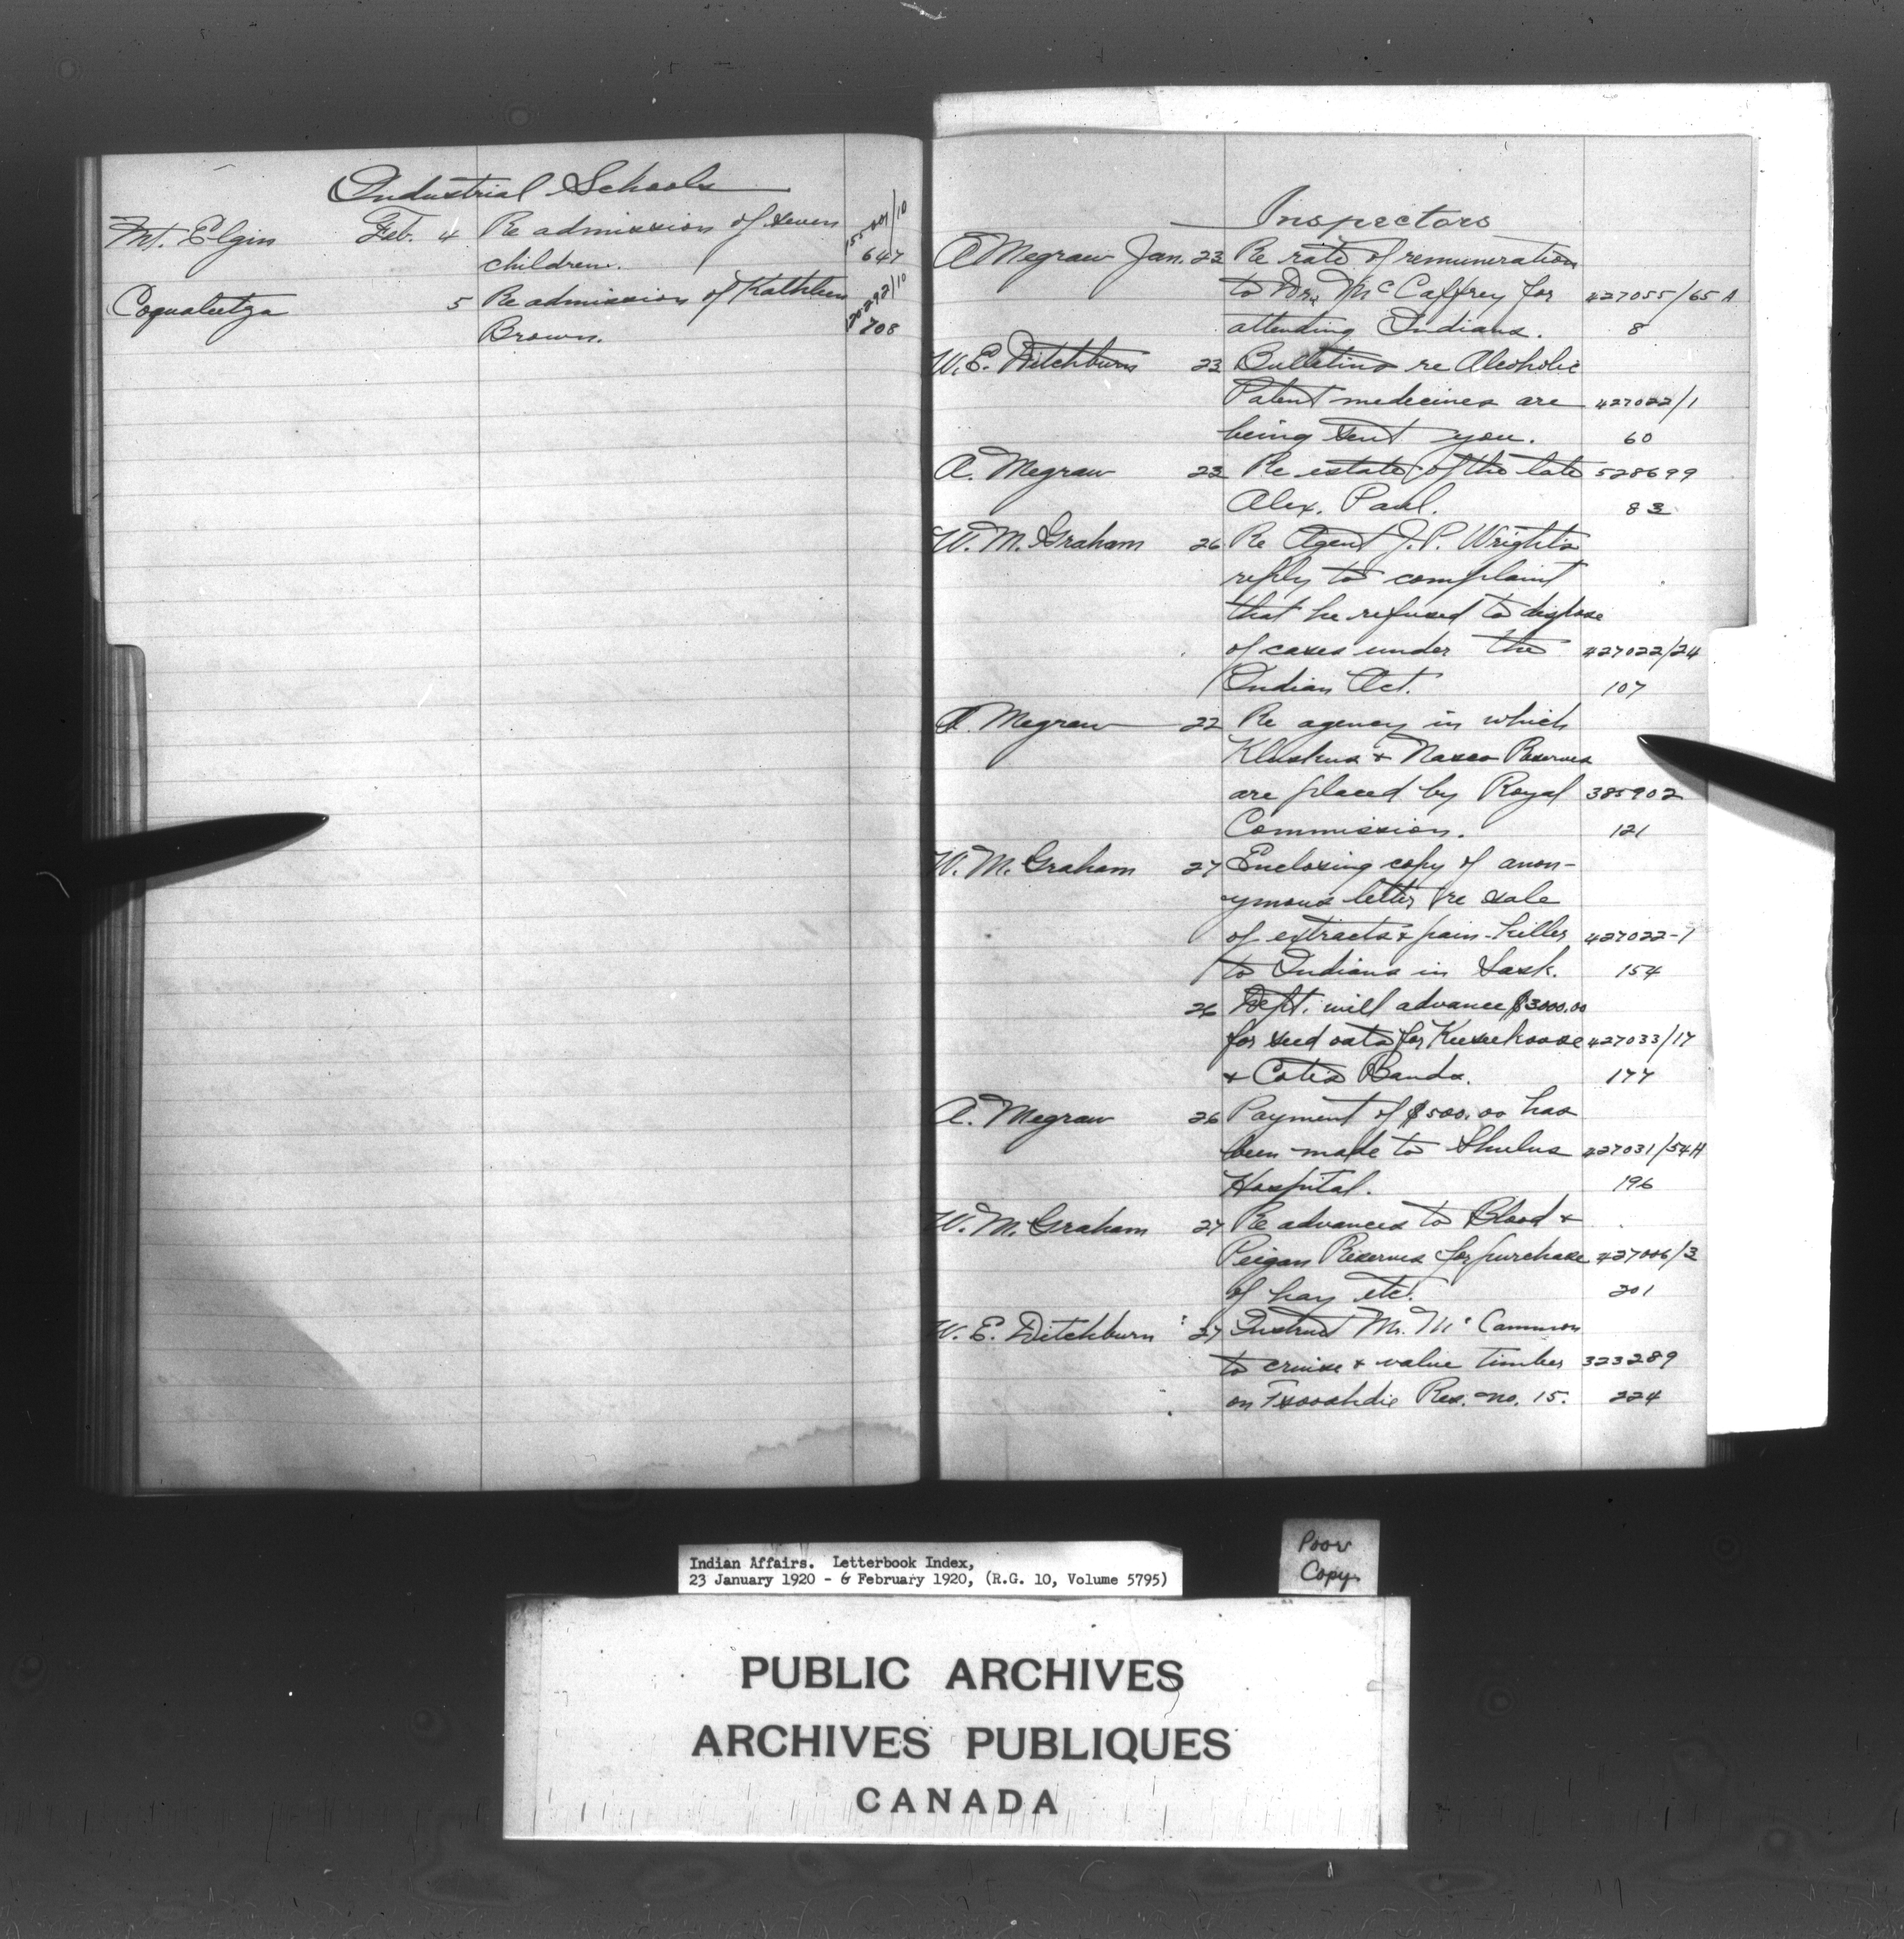 Industrial Schools
Mt. Elgin Feb. 4 Re admission of seven
children. 647
Coqualeetza 5 Re admission of Kathleen
Brown. 708
Inspectors
A Megraw Jan. 23 Re rate of remuneration
to Dr. McCaffrey for 427055/65 A
attending Indians. 8
W. E. Ditchburn 23 Bulletins re Alcoholic
Patent medicines are 427022/1
being sent you. 60
A. Megraw 23 Re estate of the late 528699
Alex. Paul. 83
W. M. Graham 26 Re Agent J. P. Wright's
reply to complaint
that he refused to dispose
of cases under the 427022/24
Indian Act. 107
A. Megraw 22 Re agency in which
Kluskus & Nazco Reserves
are placed by Royal 385902
Commission. 121
W. M. Graham 27 Enclosing copy of anon-
ymous letter re sale
of extracts & pain-killer 427022-1
to Indians in Sask. 154
26 Dept. will advance $3000.00
for seed oats for Keeseekoose 427033/17
& Cotes Bands. 177
A. Megraw 26 Payment of $500.00 has
been made to Shulus 427031/54H
Hospital. 196
W. M. Graham 27 Re advances to Blood &
Peigan Reserves for purchase 427006/3
of hay etc. 201
W. E. Ditchburn 27 Instruct Mr. McCammon
to cruise & value timber 323289
on Tsooahdie Res. no. 15. 224
Indian Affairs. Letterbook Index,
23 January 1920 - 6 February 1920, (R.G. 10, Volume 5795)
Poor
Copy
PUBLIC ARCHIVES
ARCHIVES PUBLIQUES
CANADA